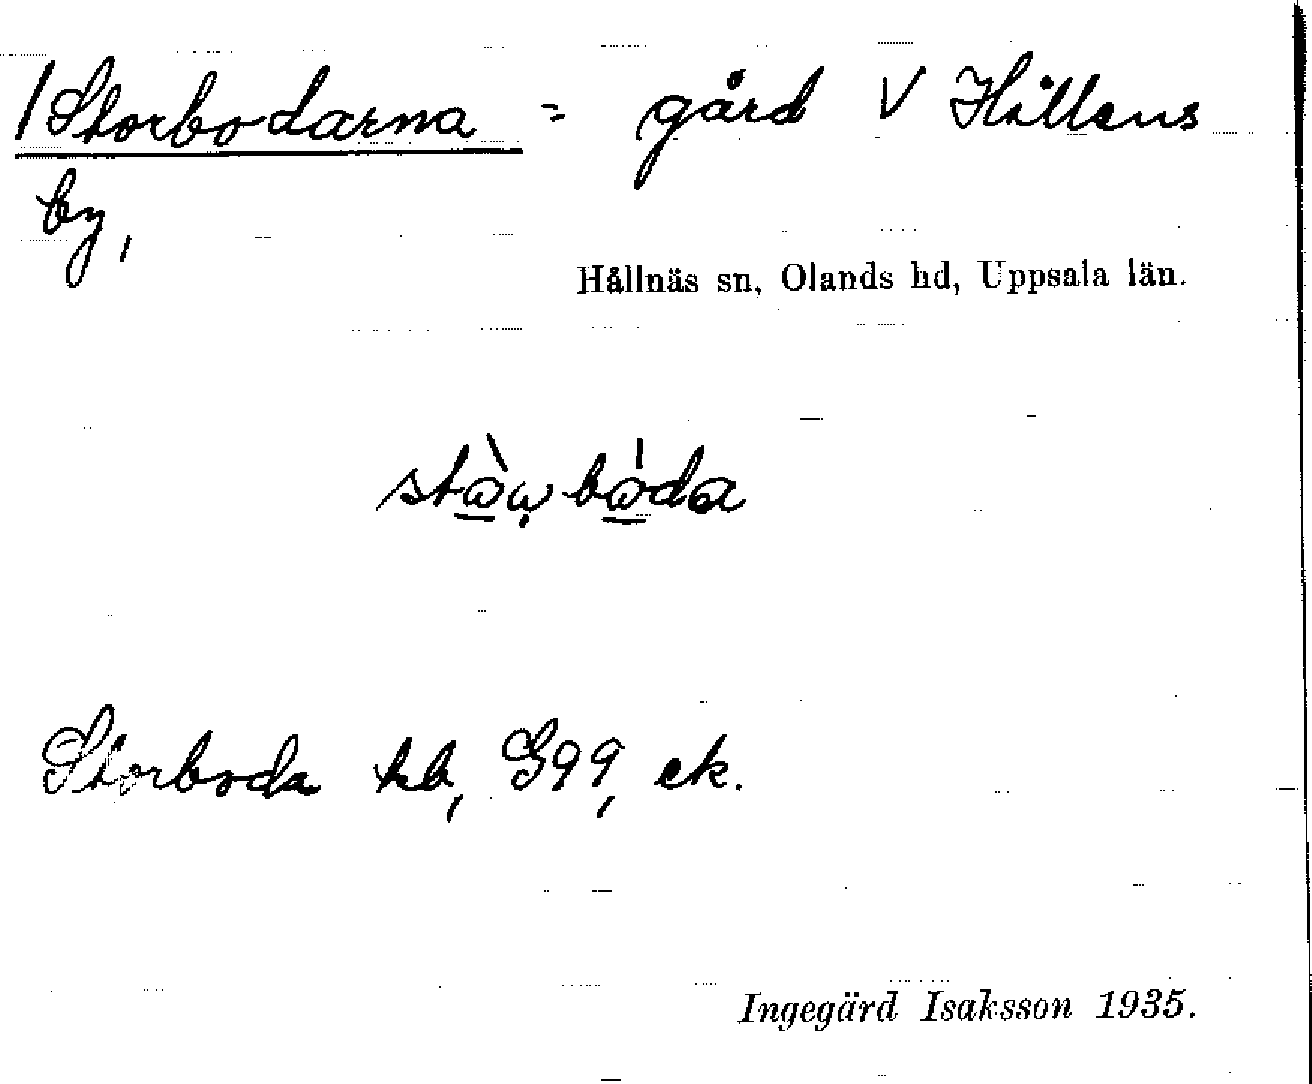 /Storbodarna = gård V Hållens
by,
Hållnäs sn, Olands hd, Uppsala län.
Storboda hb, G99, ek.
Ingegärd Isaksson 1935.